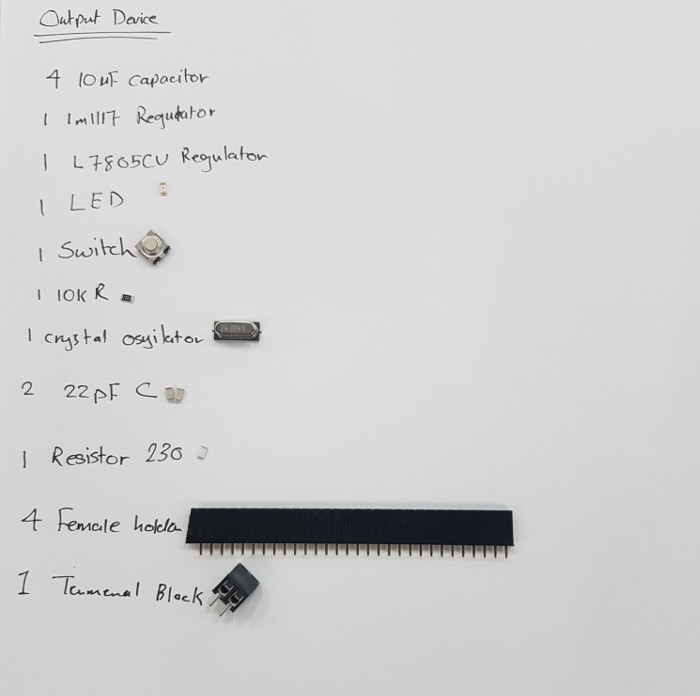 Output Device
4 10uF capacitor
1 1m1117 Regulator
1 L7805CV Regulator
1 LED
1 Switch
1 10K R
1 crystal osyilator
2 22pF C
1 Resistor 230
4 Female holder
1 Termenal Block